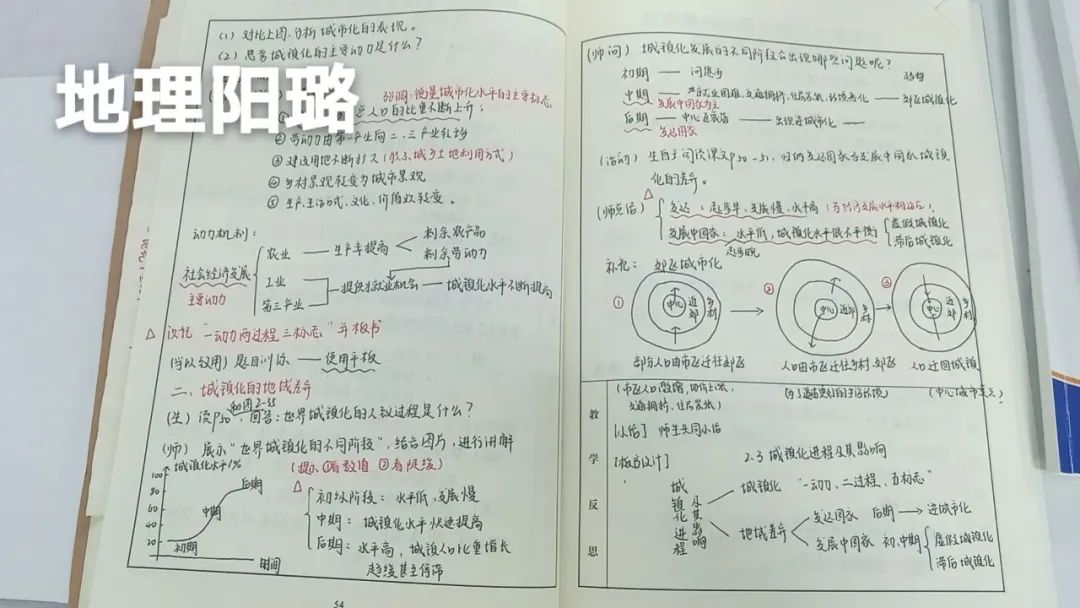 (1) 对比上图,分析城市化的表现。
(2) 思考城镇化的主要动力是什么?
地理阳璐
强调:衡量城市化水平的主要标志
人口的比重不断上升;
② 劳动力由第一产业向二、三产业转移
③ 建设用地不断扩大(城乡土地利用方式)
④ 乡村景观转变为城市景观
⑤ 生产、生活方式、文化、价值观转变。
动力机制:
社会经济发展
主要动力
农业 —— 生产率提高
剩余农产品
剩余劳动力
工业
第三产业
提供就业机会 —— 城镇化水平不断提高
△ 识记 "一动力两过程三标志" 并板书
题目训练 —— 使用平板
二、城镇化的地域差异
(生) 读P50 和图2-35 , 回答:世界城镇化的大致过程是什么?
(师) 展示"世界城镇化的不同阶段", 结合图片,进行讲解
城镇化水平/%
100
80
60
40
20
0
初期
中期
后期
时间
(提示 ①看数值 ②看陡缓)
△
初级阶段: 水平低、发展慢
中期: 城镇化水平快速提高
后期: 水平高,城镇人口比重增长
趋缓甚至停滞
54
(师问) 城镇化发展的不同阶段会出现哪些问题呢?
初期 —— 问题少
中期 —— 就业困难、交通拥挤、住房紧张、环境恶化 —— 郊区城镇化
发展中国家为主
后期 —— 中心区衰落 —— 出现逆城市化 ——
发达国家
(活动) 生自主阅读课文P50-51, 归纳发达国家与发展中国家城镇
化的差异。
△
(师总结)
发达: 起步早、发展慢、水平高 (与经济发展水平相适应)
发展中国家: 水平低,城镇化水平很不平衡
起步晚
虚假城镇化
滞后城镇化
补充: 郊区城市化
①
中心
近郊
乡村
②
中心
近郊
乡村
③
中心
近郊
乡村
部分人口由市区迁往郊区
人口由市区迁往乡村、郊区
人口迁回城镇
交通拥挤、住房紧张)
(中心城市
教学反思
师生共同小结
[板书设计]
2.3 城镇化进程及其影响
城镇化进程及其影响
城镇化 "一动力、二过程、五标志"
地域差异
发达国家 后期 → 逆城市化
发展中国家 初、中期
虚假城镇化
滞后城镇化